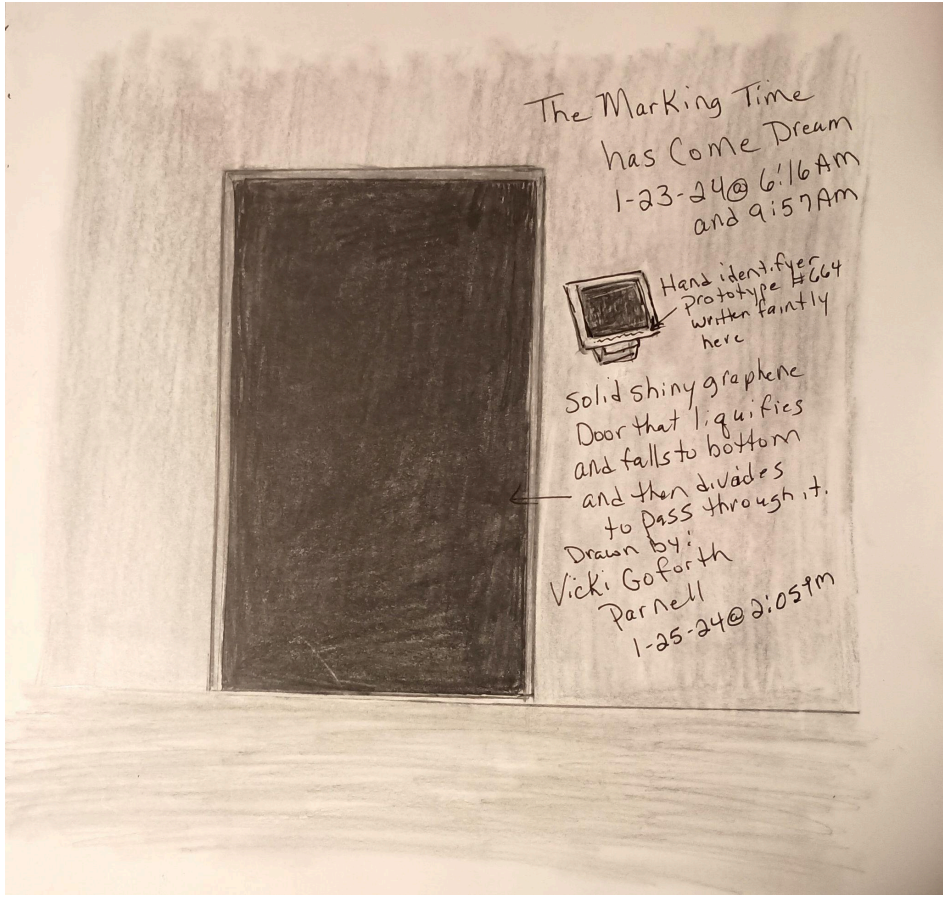 The Marking Time
has Come Dream
1-23-24@ 6:16 AM
and 9:57AM
Hand identifyer
prototype #664
written faintly
here
Solid shiny graphene
Door that liquifies
and falls to bottom
and then divides
to pass through it.
Drawn by:
Vicki Goforth
Parnell
1-25-24@2:05pm